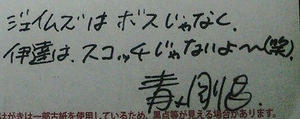 ジェイムズはボスじゃなく、
伊達は、スコッチじゃないよ〜(笑)
青山剛昌
はがきは一部古紙を使用しているため、黒点等が見える場合があります。